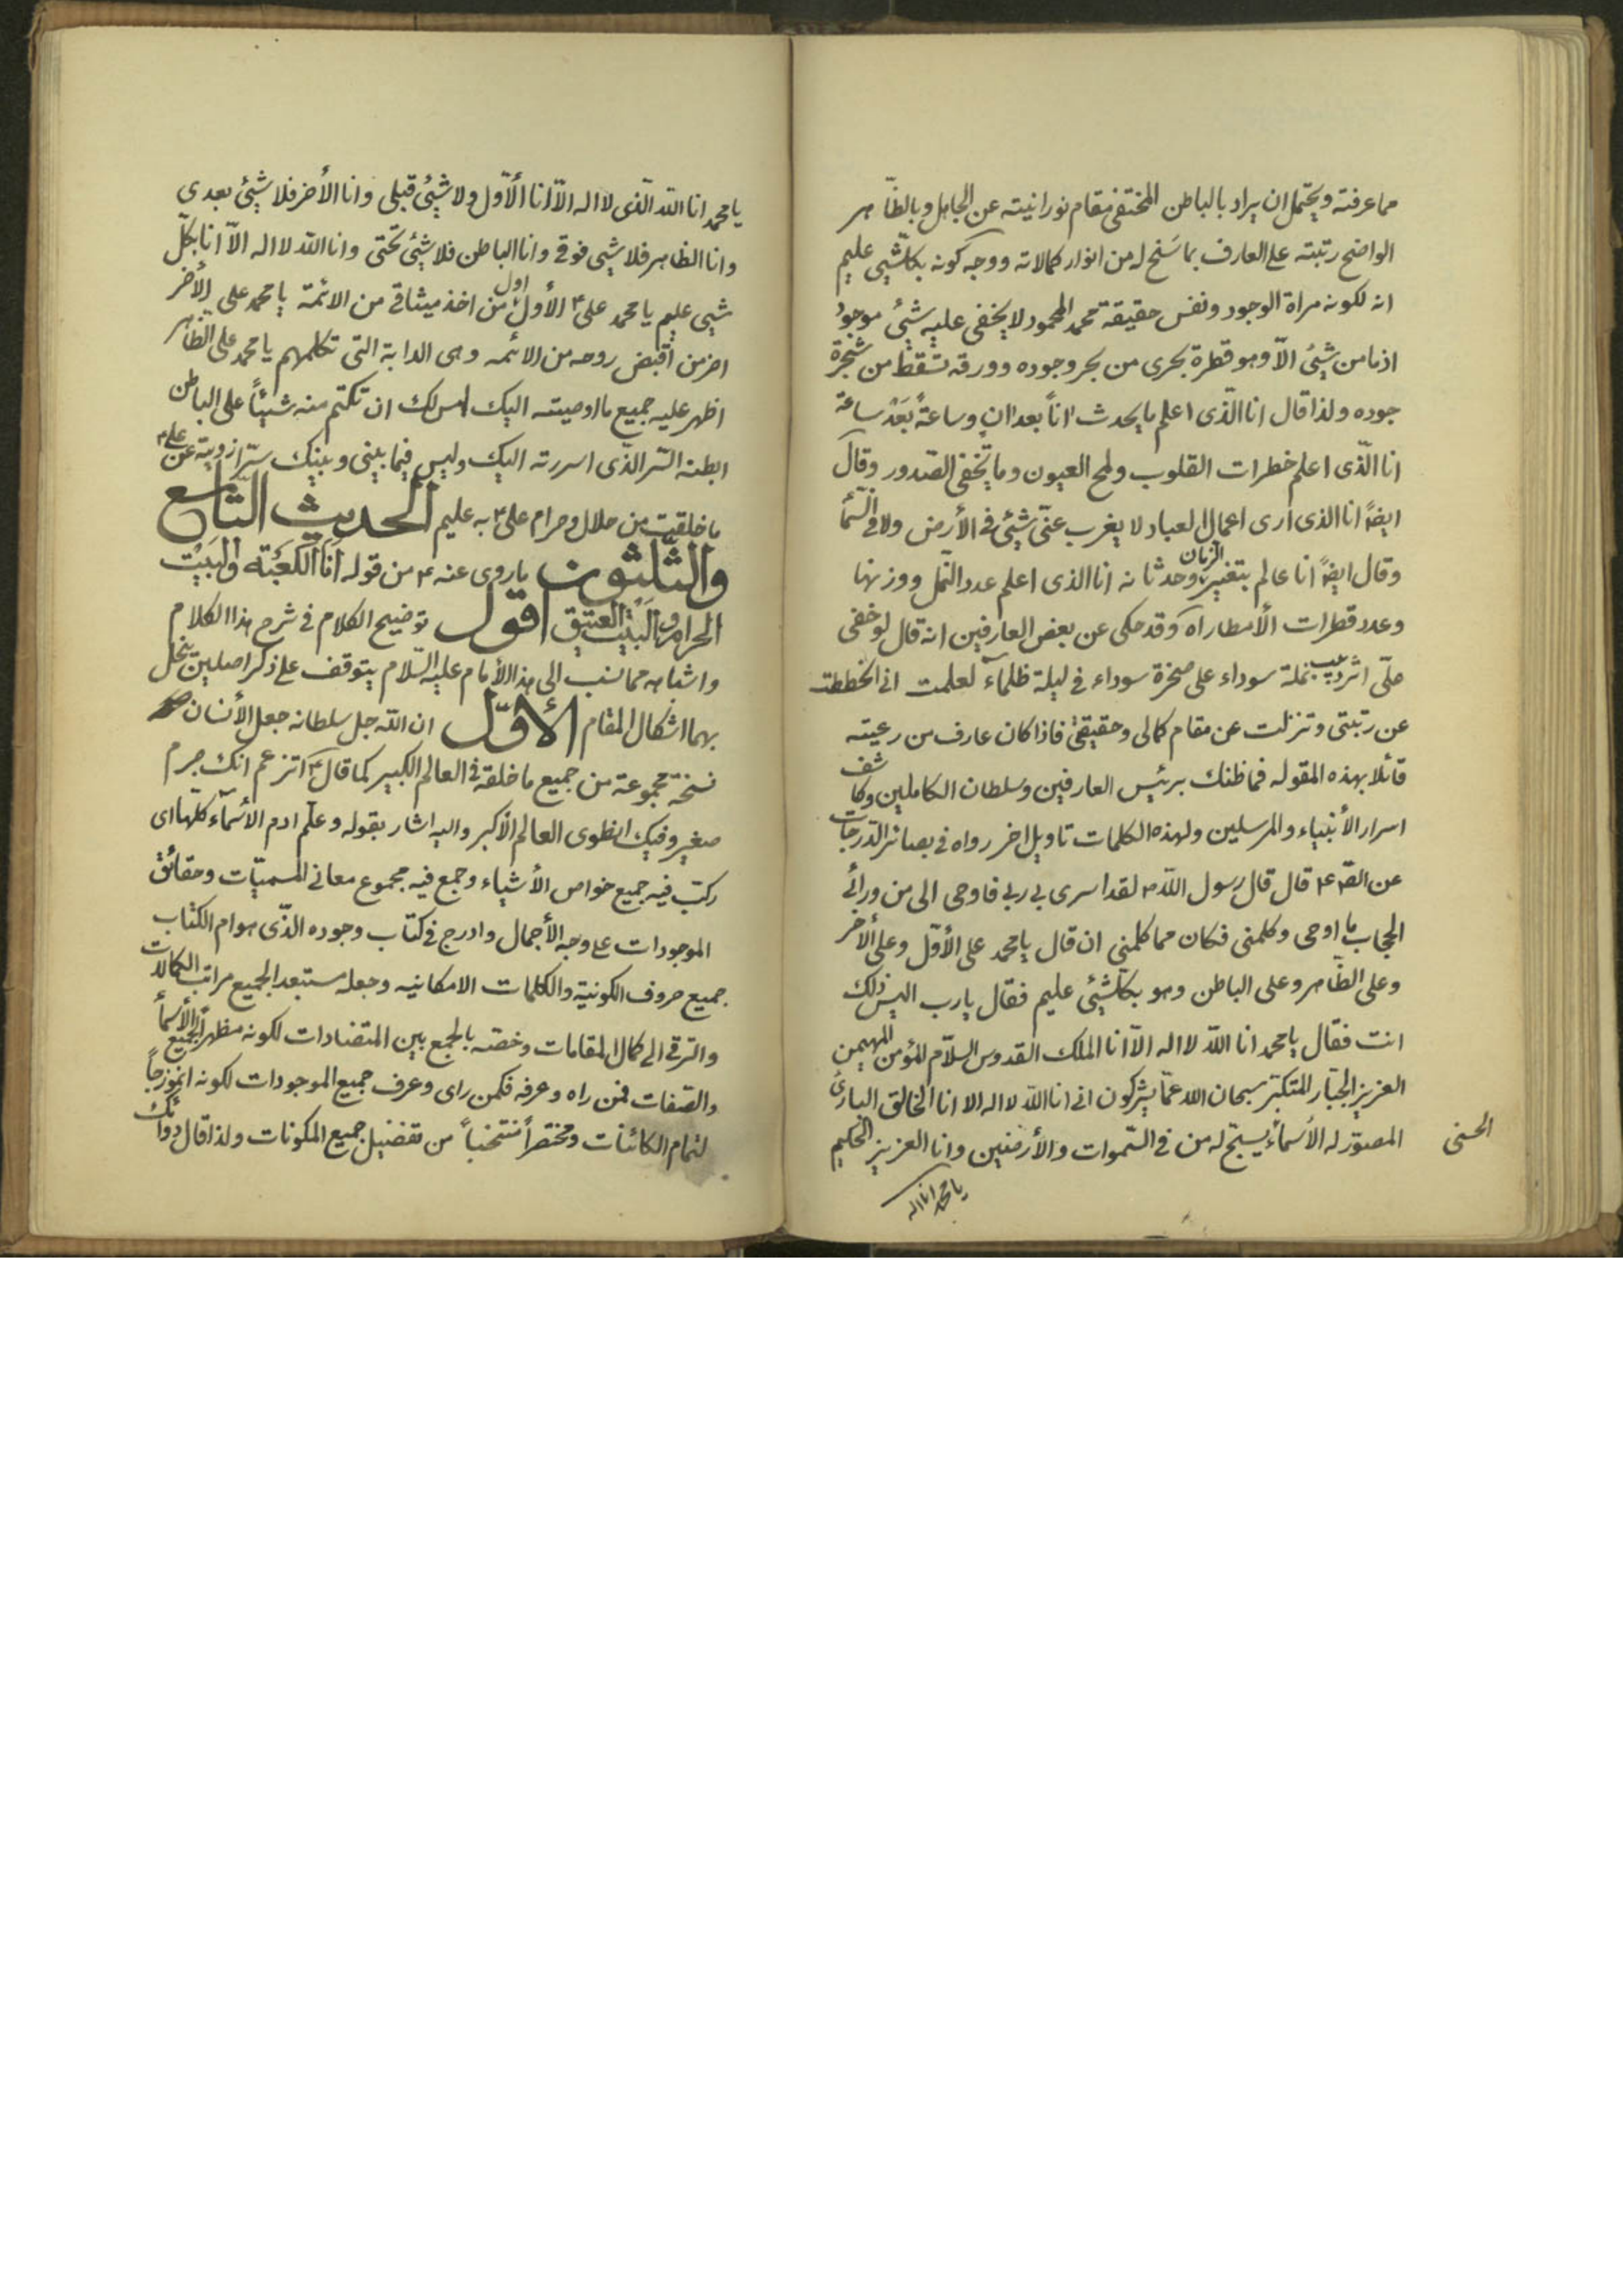 مما عرفته ويحتمل ان يراد بالباطن المختفى مقام نورانيته عن الجاهل وبالظاهر
الواضح رتبته على العارف بما سنح له من انوار كمالاته ووجه كونه بكلّ شيى عليم
انه لكونه مراة الوجود ونفس حقيقة محمد المحمود لا يخفى عليه شيئ موجود
اذ ما من شيئ الاّ وهو قطرة تجرى من بحر وجوده وورقة تسقط من شجرة
جوده ولذا قال انا الّذى اعلم ما يحدث اناً بعد ان وساعةً بَعْد ساعة
انا الّذى اعلم خطرات القلوب ولمح العيون وما تخفى الصّدور وقال
ايضاً انا الذى ارى اعمال العباد لا يغرب عنّى شيئ فى الأرض ولا فى السّمآ
وقال ايضاً انا عالم بتغيير الزمان وحدثانه انا الذى اعلم عدد النّمل ووزنها
وعدد قطرات الأمطار اه وقد حكى عن بعض العارفين انه قال لو خفى
علىّ اثر دبيب نملة سوداء على صخرة سوداء فى ليلة ظلمآء لعلمت انى انحططت
عن رتبتى وتنزلت عن مقام كمالى وحقيقتى فاذا كان عارف من رعيته
قائلا بهذه المقوله فما ظنك برئيس العارفين وسلطان الكاملين وكاشف
اسرار الأنبياء والمرسلين ولهذه الكلمات تاويل اخر رواه فى بصائر الدّرجات
عن الصّ ع قال قال رسول اللّه ص لقد اسرى بى ربى فاوحى الى من ورائ
الحجاب ما اوحى وكلمنى فكان مما كلمنى ان قال يا محمد على الأوّل وعلى الأخر
وعلى الظّاهر وعلى الباطن وهو بكلّ شيئ عليم فقال يارب اليس ذلك
انت فقال يا محمد انا اللّه لا اله الاّ انا الملك القدوس السّلام المؤمن المهيمن
العزيز الجبّار المتكبّر سبحان اللّه عمّا يشركون انى انا اللّه لا اله الا انا الخالق البارئ
المصوّر له الأسمآء يسبّح له من فى السّموات والأرضين وانا العزيز الحكيم
الحسنى
يا محمد انا اله
يا محمد انا اللّه الّذى لا اله الاّ انا الأوّل ولا شيئ قبلى وانا الأخر فلا شيئ بعدى
وانا الظاهر فلا شيى فوقى وانا الباطن فلا شيئ تحتى وانا اللّه لا اله الاّ انا بكلّ
شيى عليم يا محمد على ع الأول اول من اخذ ميثاقى من الائمة يا محمد على الأخر
اخر من اقبض روحه من الائمه وهى الدابة التى تكلمهم يا محمد على الظّاهر
اظهر عليه جميع ما اوصيته اليك ليس لك ان تكتم منه شيئاً على الباطن
ابطنه السّر الذّى اسررته اليك وليس فيما بينى وبينك سرّ ازويته عن على ع
ما خلقت من حلال وحرام على ع به عليم الحديث التّاسع
والثّلثون ما روى عنه ع من قوله اَنَا الْكَعْبَة والْبَيْت
الحرام والبَيْت العتيق اقول توضيح الكلام فى شرح هذا الكلام
واشباهه مما نسب الى هذا الأمام عليه السّلام يتوقف على ذكر اصلين ينحل
بهما اشكال المقام الأوّل ان اللّه جل سلطانه جعل الأنسان
نسخة مجموعة من جميع ما خلقه فى العالم الكبير كما قال ع اتزعم انك جرم
صغير وفيك انطوى العالم الأكبر واليه اشار بقوله وعلّم ادم الأسمآء كلهّا اى
ركّب فيه جميع خواص الأشياء وجمع فيه مجموع معانى المسميّات وحقائق
الموجودات على وجه الأجمال وادرج فى كتاب وجوده الذّى هو ام الكتاب
جميع حروف الكونية والكلمات الامكانيه وجعله مستعد الجميع مراتب الكمالات
والترقى الى كمال المقامات وخصّه بالجمع بين المتضادات لكونه مظهراً لجميع الأسمآ
والصّفات فمن راه وعرفه فكمن راى وعرف جميع الموجودات لكونه انموزجاً
لتمام الكائنات ومختصراً منتخباً من تفضيل جميع المكونات ولذا قال دوائك